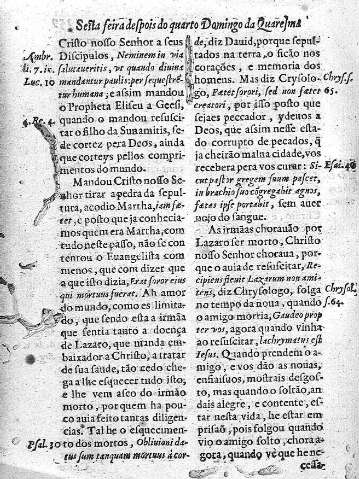 Sesta feira despois do quarto Domingo da Quaresma
Cristo nosso Senhor a seus
Discipulos, Neminem in via
salutaueritis, vt quando diuina
mandantur paulisper sequestre-
tur humana; e assim mandou
o Propheta Eliseu a Geesi,
quando o mandou resusci-
tar o filho da Sunamitis, se-
de cortez pera Deos, ainda
que corteys pellos compri-
mentos do mundo.
Mandou Cristo nosso Se-
nhor tirar a pedra da sepul-
tura, acodio Martha, iam fæ-
tet, e posto que ja conhecia-
mos quem era Martha, com
tudo neste passo, não se con-
tentou o Euangelista com
menos, que com dizer que
a que isto dizia, Erat soror eius
qui mortuus fuerat. Ah amor
do mundo, como es limita-
do, que sendo esta a irmãa
que sentia tanto a doença
de Lazaro, que manda em-
baixador a Christo, a tratar
de sua saude, tão cedo che-
ga a lhe esquecer tudo isto,
e lhe vem asco do irmão
morto, por quem ha pou-
co auia feito tantas diligen-
cias. Tal he o esquecimen-
to dos mortos, Obliuioni da-
tus sum tanquam mortuus à cor-
Ambr.
li. 7. in
Luc. 10
4. Re. 4.
Psal. 30
de, diz Dauid, porque sepul-
tados na terra, o ficão nos
corações, e memoria dos
homens. Mas diz Crysolo-
go, Patet forori, sed non fætet
creatori, por isso posto que
sejaes peccador, ydeuos a
Deos, que assim nesse esta-
do corrupto de pecados, q̃
ja cheirão mal na cidade, vos
recebera pera vos curar: Si-
cut pastor gregem suum pascet,
in brachio suo cõgregabit agnos,
fætas ipse portabit, sem auer
nojo do sangue.
As irmãas chorauão por
Lazaro ser morto, Christo
nosso Senhor choraua, por-
que o auia de resuscitar, Re-
cipiens fleuit Lazarum non amit-
tens, diz Chrysologo, folga
no tempo da noua, quando
o amigo morria, Gaudeo prop
ter vos, agora quando vinha
ao resuscitar, lachrymatus est
Iesus. Quando prendem o a-
migo, e vos dão as nouas,
ensaisuos, mostrais desgos-
to, mas quando o soltão, an-
dais alegre, e contente, es-
tar nesta vida, he estar em
prisaõ, pois folgou quando
vio o amigo solto, chora a-
gora, quando vè que he ne-
cessa-
Chrys. s.
65.
Esai. 40
Chrysol.
s. 64.